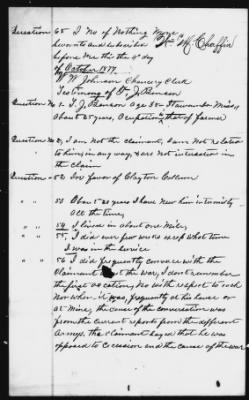 Question 65 I No of Nothing More
Sworn to and subscribed Wm McChaffin
before Me this the 4" day
of October 1877.
W W Johnson Chancery Clerk
Testimony of F. J. Benson
Question No 1. F. J. Benson Age 35 Miss,
About 25 years, Occupation that of farmer
Question No 2, I am not the claimant, I am Not related
to him in any way, & are not interested in
the Claim
Question - 52 In favor of Clayton Collum
" " 53 About 20 years I have Known him intimately
all the time,
" " 54 I lived in about one Mile,
" " 55, I did every few weeks except what time
I was in the Service
" " 56 I did frequently converse with the
Claimant about the War, I don't remember
the first occations, No with respect to each
Nor when. it was frequently at his house or
at Mine, the cause of the conversation was
from the current reports from the different
Armys. the claimant sayed that he was
opposed to Cecession and the cause of the war